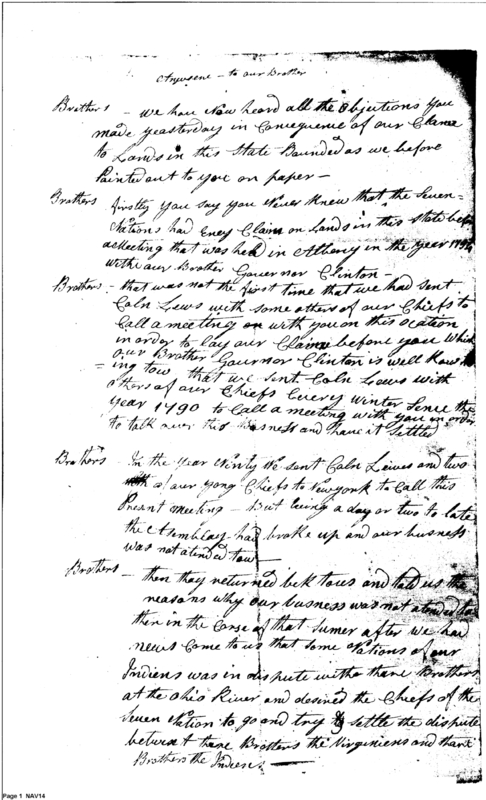 to our Brother
Brothers - we have Now heard all the Objections you
made yeasterday in Consequence of our Claime
to Lands in this State Bounded as we before
Pointed out to you on paper -
Brothers firstly you say you Never Knew that the Seven -
Nations had Eney Claim on Lands in this State before
a Meeting that was held in Albeny in the year
withe our Brother Governor Clinton -
Brothers - that was not the first time that we had sent
Coln Lews with some others of our Chiefs to
Call a meeting on with you on this ocation
in order to lay our Claime before you Which
our Brother Gouernor Clinton is well Know
=ing tow that we sent Coln Lews with
others of our Chiefs Every winter Sence the
year 1790 to Call a meeting with you in order
to talk over this Busness and have it Settled
Brothers In the year Ninty We sent Coln Lewes and two
of our yong Chiefs to Newyork to Call this
Presant meeting - But being a day or two to late
the Asmblay had broke up and our busness
was not atended tow -
Brothers - then thay returned bek to us and told us the
reasons why our busness was not atended tow
then in the Corse of that Sumer after we had
news Come to us that some Nations of our
Indiens was in dispute with thare Brothers
at the Ohio River and desired the Chiefs of the
Seven Nation to go and try to Settle the dispute
betwent thare Brothers the Virginiens and thare
Brothers the Indiens -
Page 1 NAV14